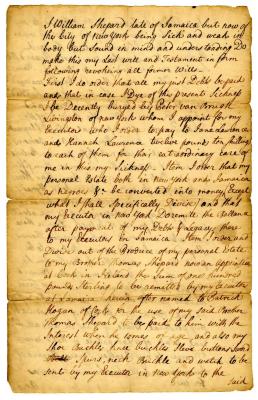 I William Shepard late of Jamaica but now of
the City of New York being Sick and weak in
body but Sound in mind and understanding Do
make this my Last will and Testament in form
following revoking all former Wills
First I do order that all my just Debts be paid
and that in case I Dye of the present Sickness
I be Decently buryed by Peter van Brugh
Livingston of New York whom I appoint for my
Executor who I order to pay to Jane Lawrence
and Hannah Lawrence twelve pound ten shilling
to each of them for their extraordinary care of
me in this my Sickness Item I order that my
personal Estate both in New York and Jamaica
as negroes &c be converted into money Except
what I shall Specifically Divise and that
my Executor in New York Doremitt the Ballance
after payment of my Debts & Legacys there
to my Executors in Jamaica Item I order and
Divise out of the produce of my personal Estate
to my Brother Thomas Shepard now an apprentice
at Cork in Ireland the Sum of one hundred
pounds Sterling to be remitted by my Executors
at Jamaica herein after named to Patrick
Hogan of Cork for the use of my said Brother
Thomas Shepard to be paid to him with the
Interest when he comes of age and also my
Shoe Buckles knee buckles Sleve buttons Sword
Spurs, neck Buckle and watch to be
sent by my Executor in New York to the
said